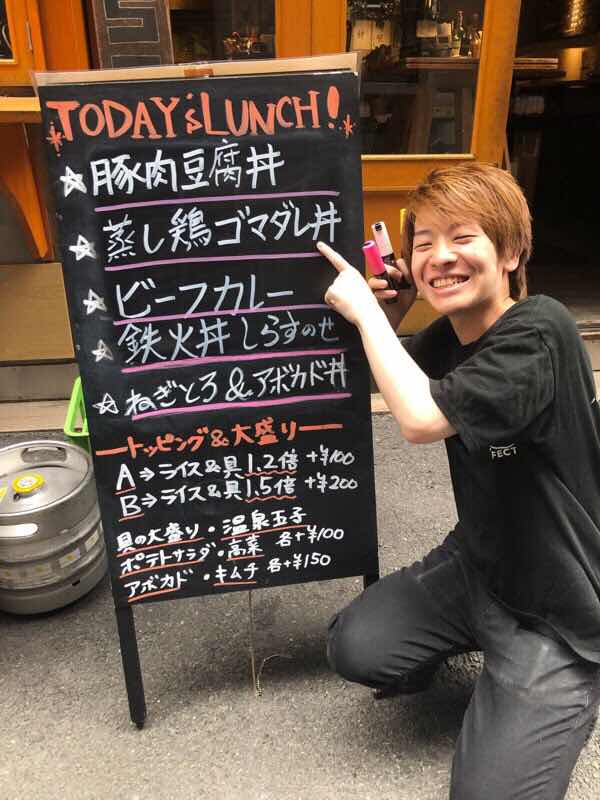 TODAY'S LUNCH!
☆豚肉豆腐丼
☆蒸し鶏ゴマダレ丼
☆ビーフカレー
☆鉄火丼しらすのせ
☆ねぎとろ&アボカド丼
ートッピング&大盛りー
A→ライス&具1.2倍 +¥100
B→ライス&具1.5倍 +¥200
具の大盛り・温泉玉子
ポテトサラダ・高菜 各+¥100
アボカド・キムチ 各+¥150
FECT